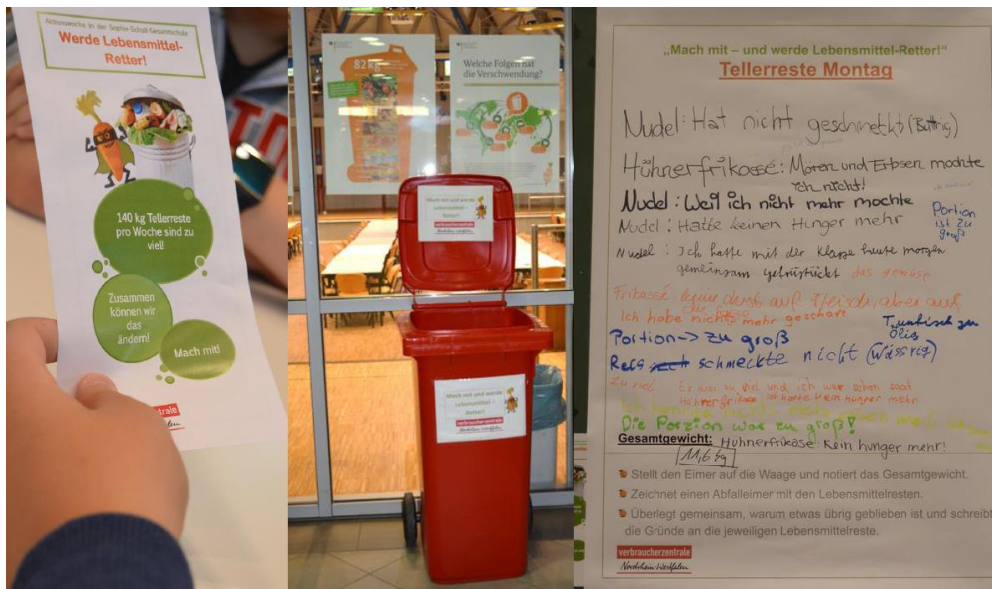 Aktionswoche in der Sophie-Scholl-Gesamtschule
Werde Lebensmittel-
Retter!
140 kg Tellerreste
pro Woche sind zu
viel!
Zusammen
können wir
das
ändern!
Mach mit!
verbraucherzentrale
Nordrhein-Westfalen
82 kg
Welche Folgen hat
die Verschwendung?
Mach mit und werde
Lebensmittel-
Retter!
verbraucherzentrale
Mach mit und werde
Lebensmittel-
Retter!
verbraucherzentrale
„Mach mit – und werde Lebensmittel-Retter!"
Tellerreste Montag
Nudel: Hat nicht geschmeckt (Buttrig)
Hühnerfrikasé: Mören und Erbsen mochte
ich nicht!
Nudel: Weil ich nicht mehr mochte
Portion
ist zu
groß
Nudel: Hatte keinen Hunger mehr
Nudel: Ich hatte mit der Klasse heute morgen
gemeinsam gefrüstückt das gemüse
Frikassé: keine auf Fleisch, aber auf
Ich habe nichts mehr geschaft
Portion -> zu groß
Tunfisch zu
Ölig
Reis schmeckte nicht (Wässrig)
Zu viel Er war zu viel und ich war schon satt
Hühnerfrikase ich hatte kein hungrer mehr
Die Porzion war zu groß!
Gesamtgewicht: Hühnerfrikase: Kein hunger mehr!
11,6 kg
Stellt den Eimer auf die Waage und notiert das Gesamtgewicht.
Zeichnet einen Abfalleimer mit den Lebensmittelresten.
Überlegt gemeinsam, warum etwas übrig geblieben ist und schreibt
die Gründe an die jeweiligen Lebensmittelreste.
verbraucherzentrale
Nordrhein-Westfalen